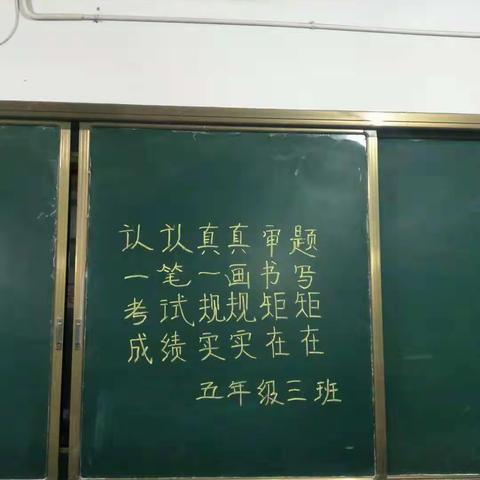 认认真真审题
一笔一画书写
考试规规矩矩
成绩实实在在
五年级三班